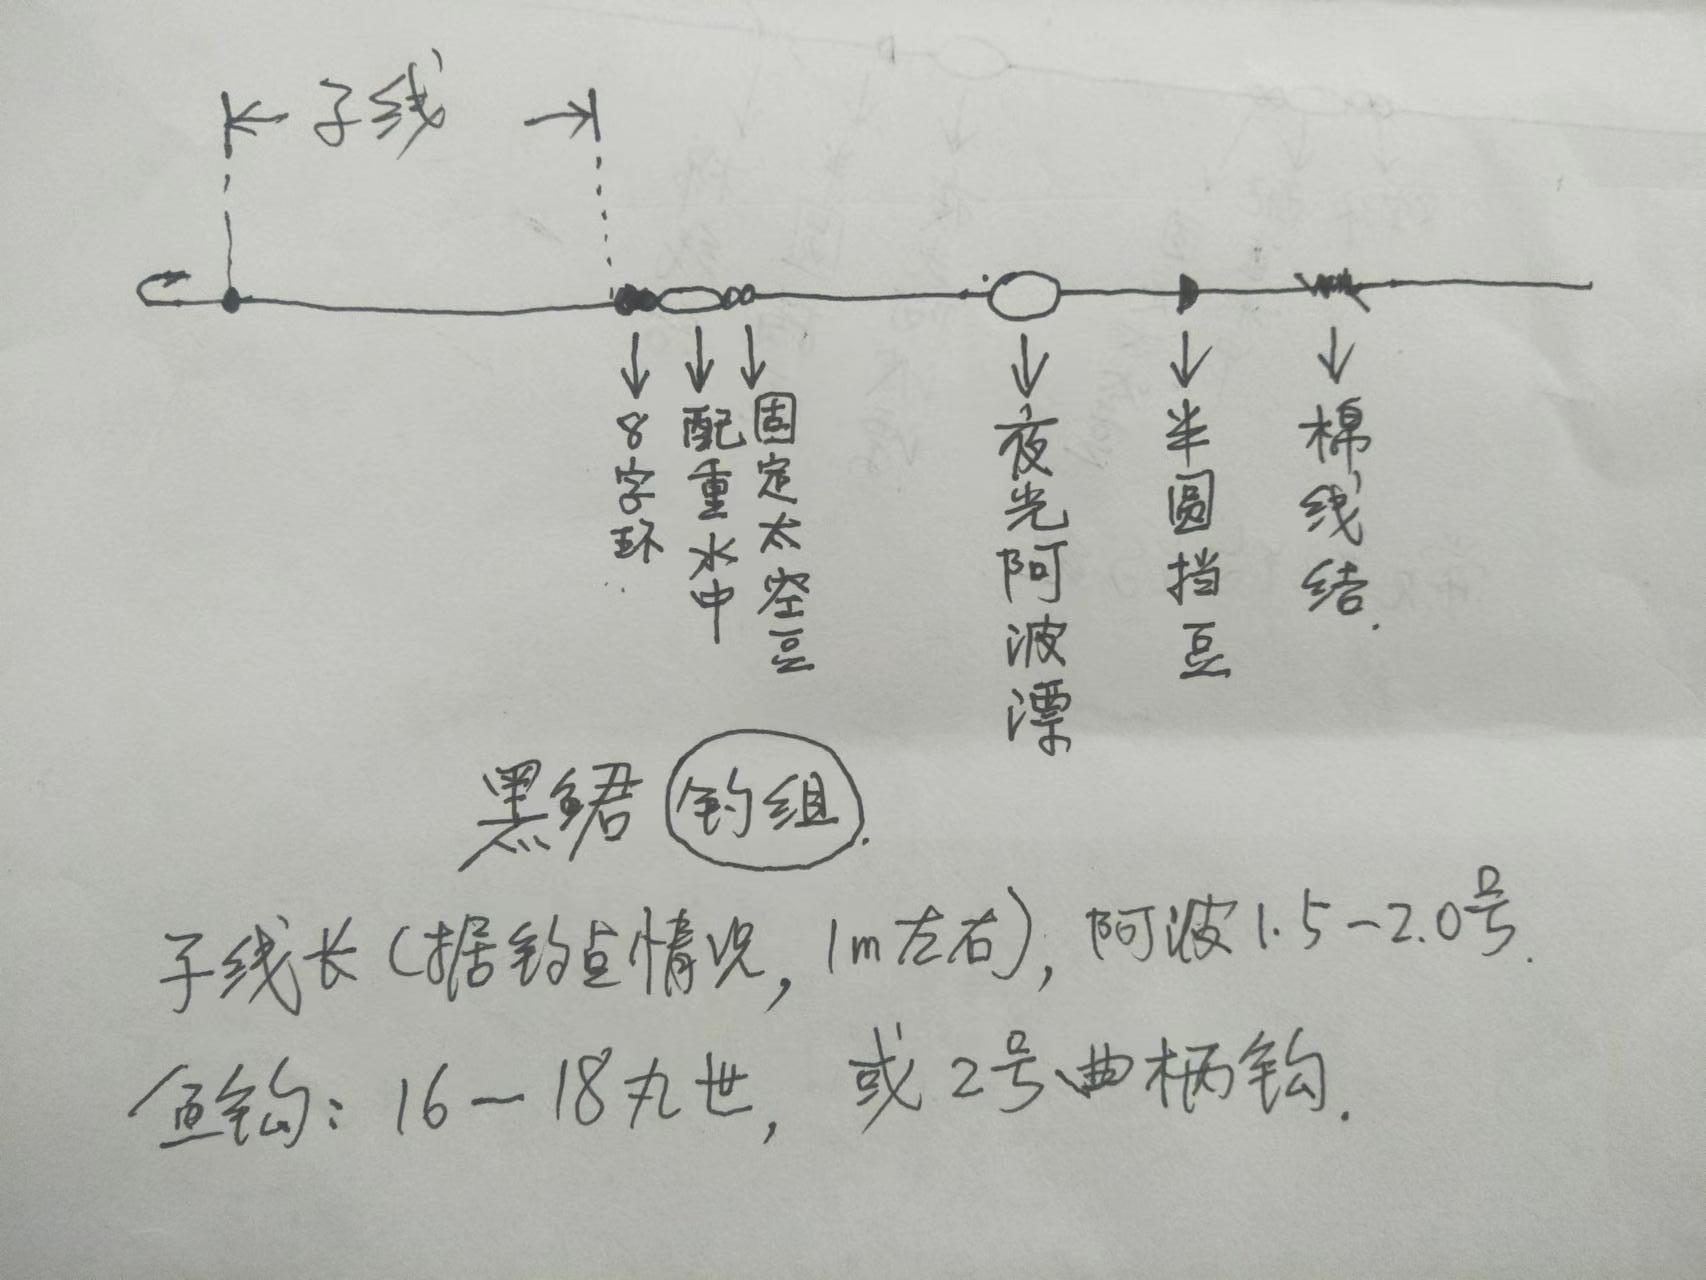 子线
8字环
配重水中
固定太空豆
夜光阿波漂
半圆挡豆
棉线结.
黑鲪 钓组.
子线长(据钓点情况, 1m左右), 阿波1.5-2.0号.
鱼钩: 16-18丸世, 或2号曲柄钩.